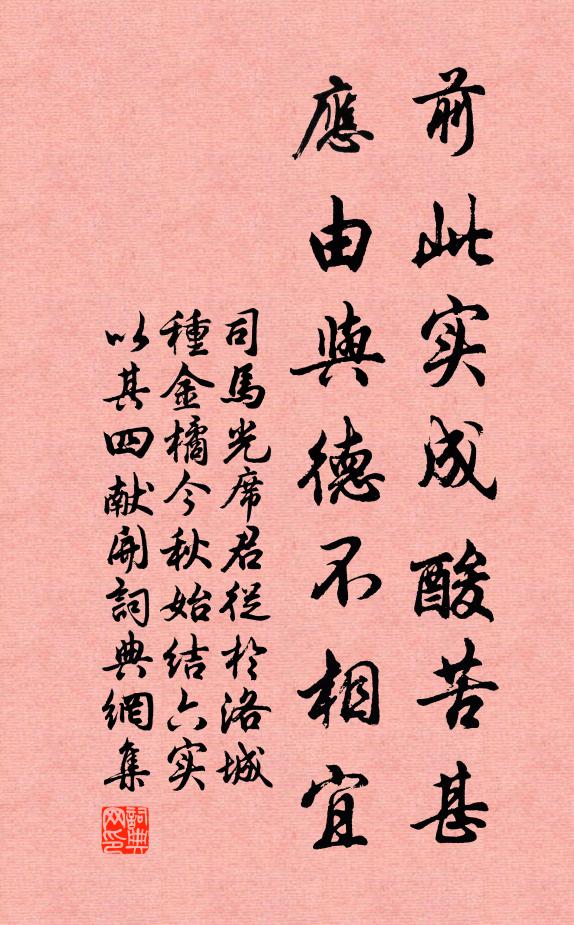 前此实成酸苦甚
應由與德不相宜
司馬光席君從於洛城
種金橘今秋始結六实
以其四献開詞典網集
詞典
网印